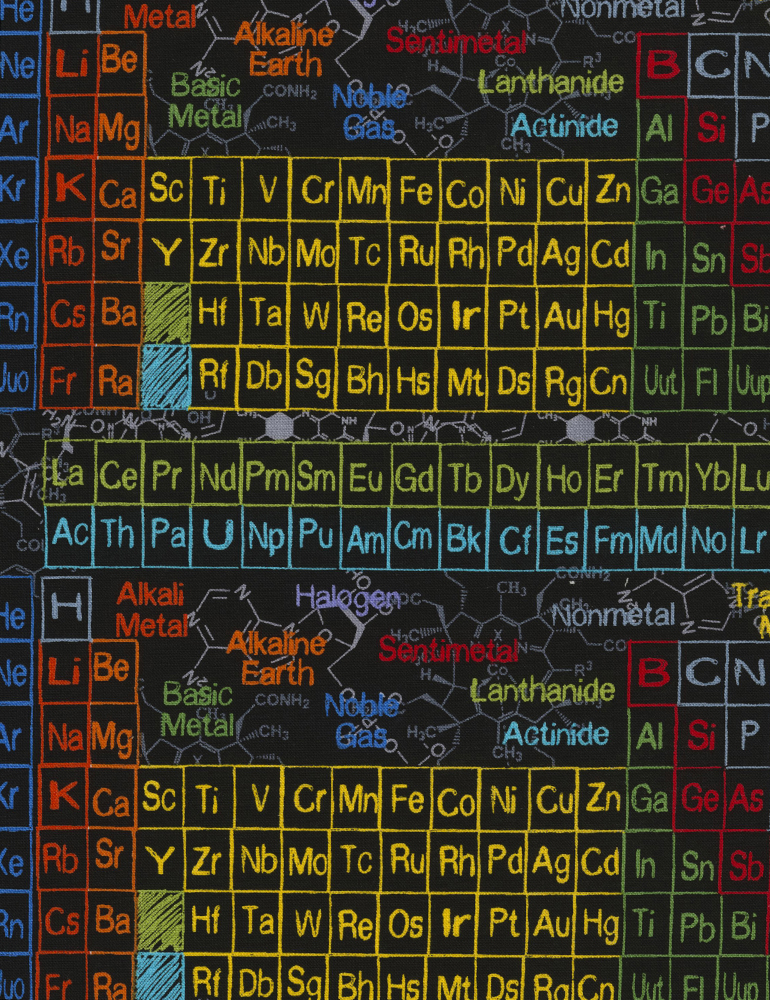 He H Metal Alkaline Earth Sentimetal Nonmetal
Ne Li Be Basic Metal Noble Gas Lanthanide B C N
Ar Na Mg Actinide Al Si P
Kr K Ca Sc Ti V Cr Mn Fe Co Ni Cu Zn Ga Ge As
Xe Rb Sr Y Zr Nb Mo Tc Ru Rh Pd Ag Cd In Sn Sb
Rn Cs Ba Hf Ta W Re Os Ir Pt Au Hg Ti Pb Bi
Uuo Fr Ra Rf Db Sg Bh Hs Mt Ds Rg Cn Uut Fl Uup
La Ce Pr Nd Pm Sm Eu Gd Tb Dy Ho Er Tm Yb Lu
Ac Th Pa U Np Pu Am Cm Bk Cf Es Fm Md No Lr
He H Alkali Metal Alkaline Earth Halogen Sentimetal Nonmetal
Ne Li Be Basic Metal Noble Gas Lanthanide B C N
Ar Na Mg Actinide Al Si P
Kr K Ca Sc Ti V Cr Mn Fe Co Ni Cu Zn Ga Ge As
Xe Rb Sr Y Zr Nb Mo Tc Ru Rh Pd Ag Cd In Sn Sb
Rn Cs Ba Hf Ta W Re Os Ir Pt Au Hg Ti Pb Bi
Uuo Fr Ra Rf Db Sg Bh Hs Mt Ds Rg Cn Uut Fl Uup